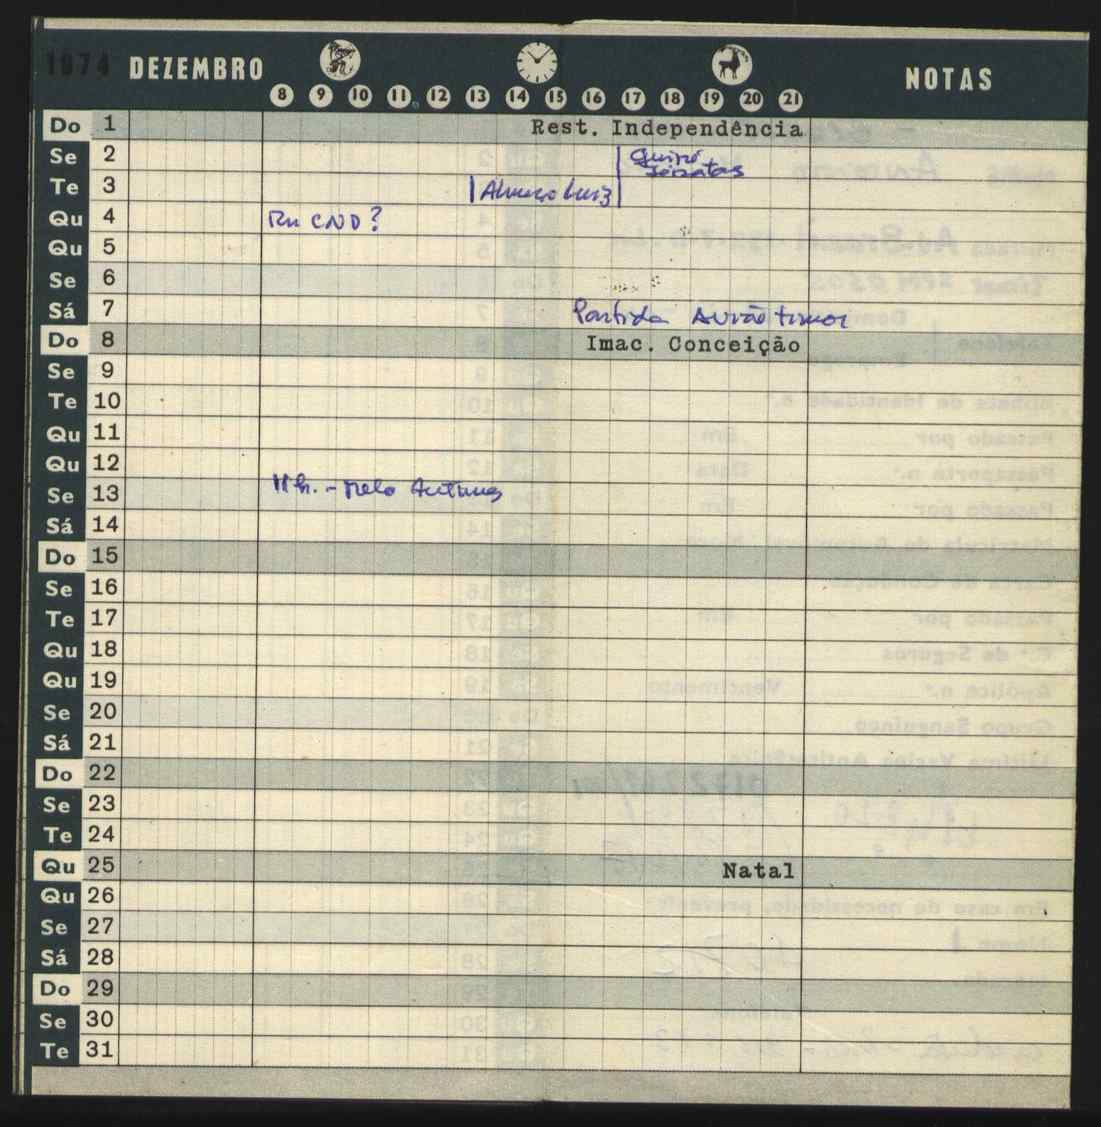 1974 DEZEMBRO NOTAS
8 9 10 11 12 13 14 15 16 17 18 19 20 21
Do 1 Rest. Independência
Se 2
Te 3 Almoço Luiz
Qu 4 Ru CND?
Qu 5
Se 6
Sá 7 Partida Avião timor
Do 8 Imac. Conceição
Se 9
Te 10
Qu 11
Qu 12
Se 13 11 h. - Melo Antunes
Sá 14
Do 15
Se 16
Te 17
Qu 18
Qu 19
Se 20
Sá 21
Do 22
Se 23
Te 24
Qu 25 Natal
Qu 26
Se 27
Sá 28
Do 29
Se 30
Te 31